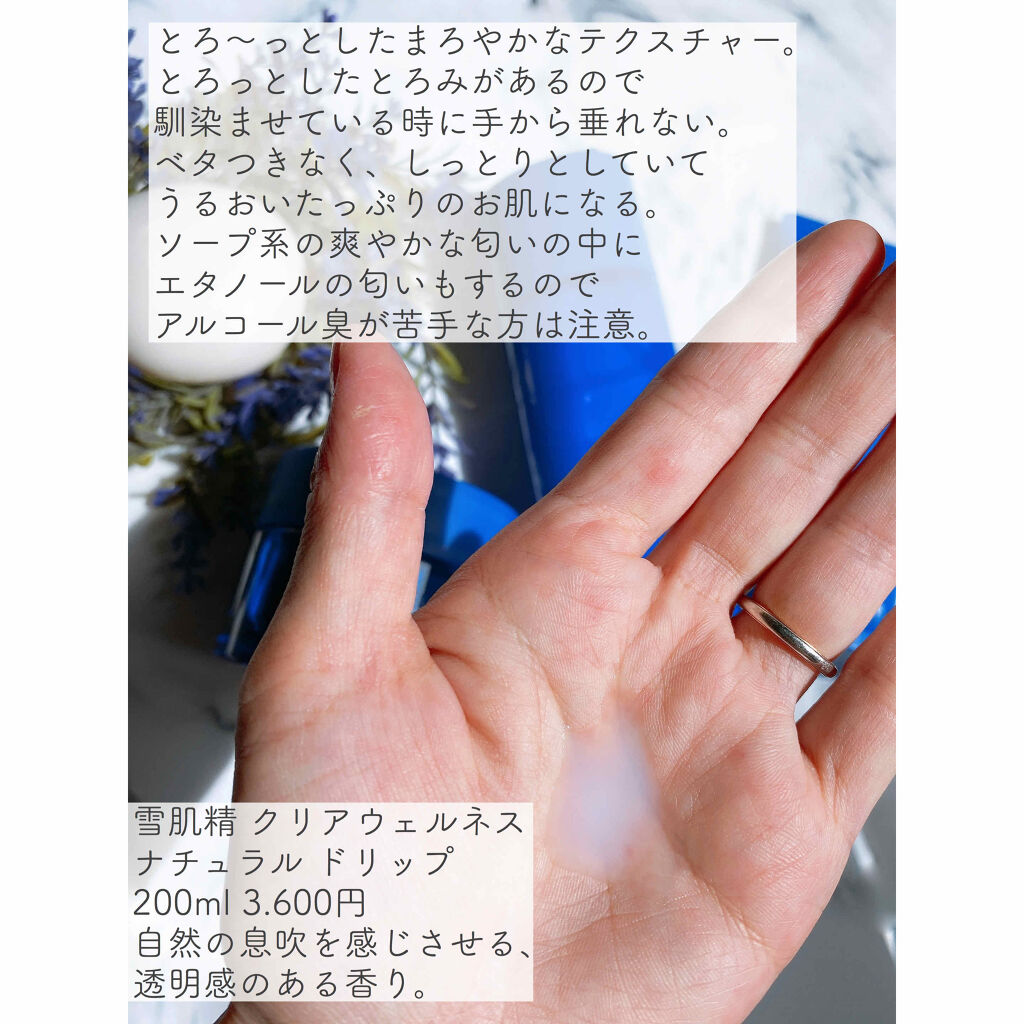 とろ〜っとしたまろやかなテクスチャー。
とろっとしたとろみがあるので
馴染ませている時に手から垂れない。
ベタつきなく、しっとりとしていて
うるおいたっぷりのお肌になる。
ソープ系の爽やかな匂いの中に
エタノールの匂いもするので
アルコール臭が苦手な方は注意。
雪肌精 クリアウェルネス
ナチュラル ドリップ
200ml 3.600円
自然の息吹を感じさせる、
透明感のある香り。